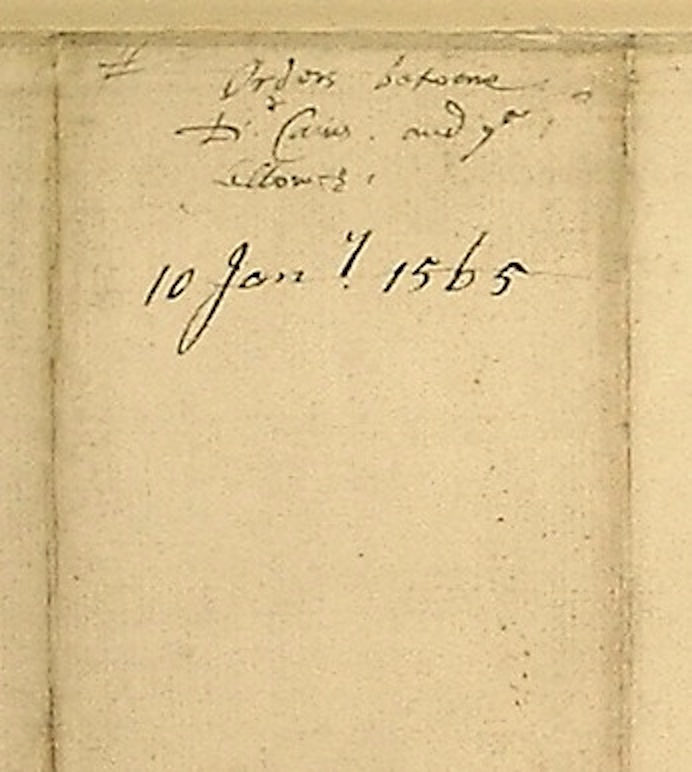 Orders betweene
Dr. Caius. and ye
ffellowes.
10 Jany. 1565